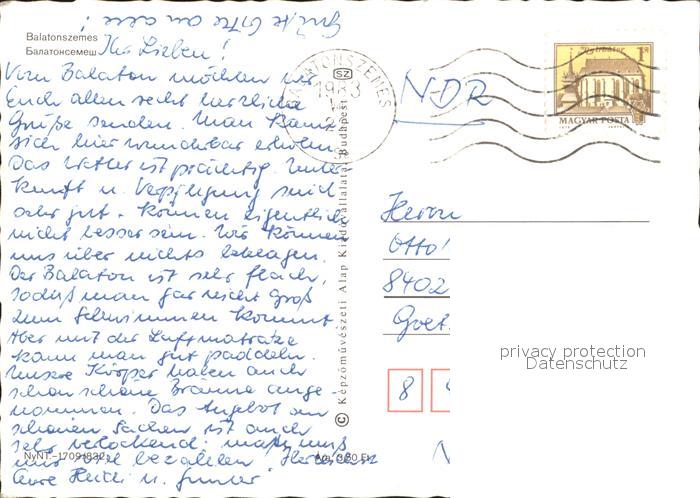 Grüße bitte an alle
Balatonszemes
Балатонсемеш
Ihr Lieben!
Vom Balaton möchten wir
Euch allen recht herzliche
Grüße senden. Man kann
sich hier wunderbar erholen.
Das Wetter ist prächtig. Unter-
kunft u. Verpflegung sind
sehr gut. Können eigentlich
nicht besser sein. Wir können
uns über nichts beklagen.
Der Balaton ist sehr flach,
sodaß man gar nicht groß
zum Schwimmen kommt.
Aber mit der Luftmatratze
kann man gut paddeln.
Unsere Körper haben auch
schon schöne Bräune ange-
nommen. Das Angebot an
schönen Sachen ist auch
sehr verlockend; man muß
nur viel bezahlen. Herzlichst
Eure Heidi u. Gunter
NyNT.-1709 (832)
Ára: 3,50 Ft
© Képzőművészeti Alap Kiadóvállalata, Budapest
SZ
BALATONSZEMES
1983
NDR
Nyírbátor
1 Ft
MAGYAR POSTA
Herrn
Otto
8402
8
privacy protection
Datenschutz